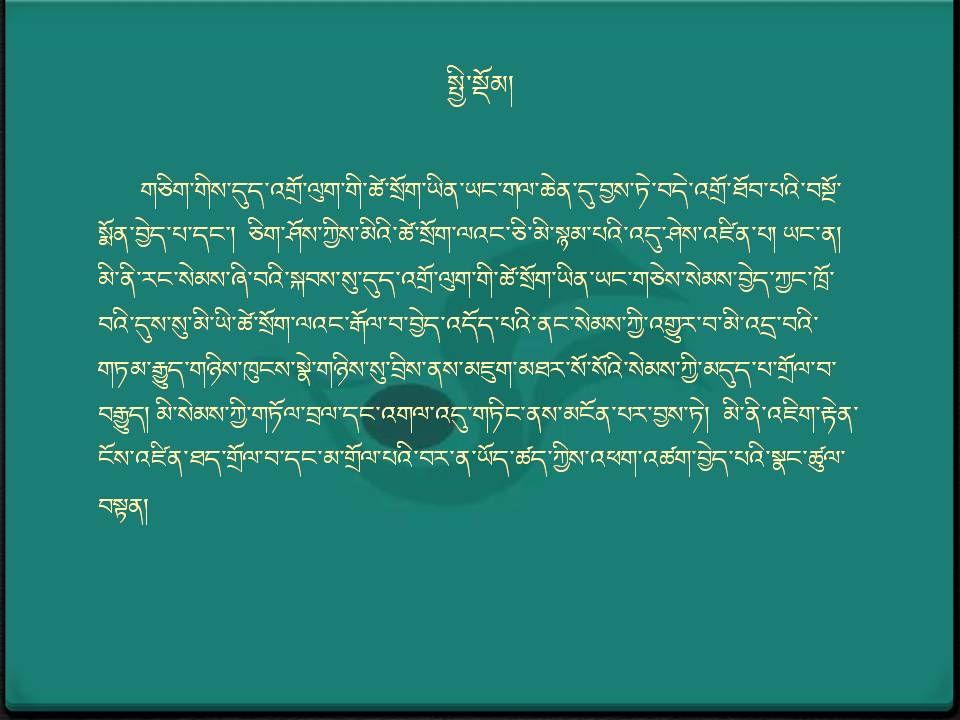 སྤྱི་སྡོམ།
གཅིག་གིས་དུད་འགྲོ་ལུག་གི་ཚེ་སྲོག་ཡིན་ཡང་གལ་ཆེན་དུ་བྱས་ཏེ་བདེ་འགྲོ་ཐོབ་པའི་བསྔོ་
སྨོན་བྱེད་པ་དང་། ཅིག་ཤོས་ཀྱིས་མིའི་ཚེ་སྲོག་ལའང་ཅི་མི་སྙམ་པའི་འདུ་ཤེས་འཛིན་པ། ཡང་ན།
མི་ནི་རང་སེམས་ཞི་བའི་སྐབས་སུ་དུད་འགྲོ་ལུག་གི་ཚེ་སྲོག་ཡིན་ཡང་གཅེས་སེམས་བྱེད་ཀྱང་ཁྲོ་
བའི་དུས་སུ་མི་ཡི་ཚེ་སྲོག་ལའང་རྒོལ་བ་བྱེད་འདོད་པའི་ནང་སེམས་ཀྱི་འགྱུར་བ་མི་འདྲ་བའི་
གཏམ་རྒྱུད་གཉིས་ཁུངས་སྣེ་གཉིས་སུ་བྲིས་ནས་མཇུག་མཐར་སོ་སོའི་སེམས་ཀྱི་མདུད་པ་གྲོལ་བ་
བརྒྱུད། མི་སེམས་ཀྱི་གཏོལ་བྲལ་དང་འགལ་འདུ་གཏིང་ནས་མངོན་པར་བྱས་ཏེ། མི་ནི་འཇིག་རྟེན་
ངོས་འཛིན་ཐད་གྲོལ་བ་དང་མ་གྲོལ་པའི་བར་ན་ཡོད་ཚད་ཀྱིས་འཕག་འཚག་བྱེད་པའི་སྣང་ཚུལ་
བསྟན།